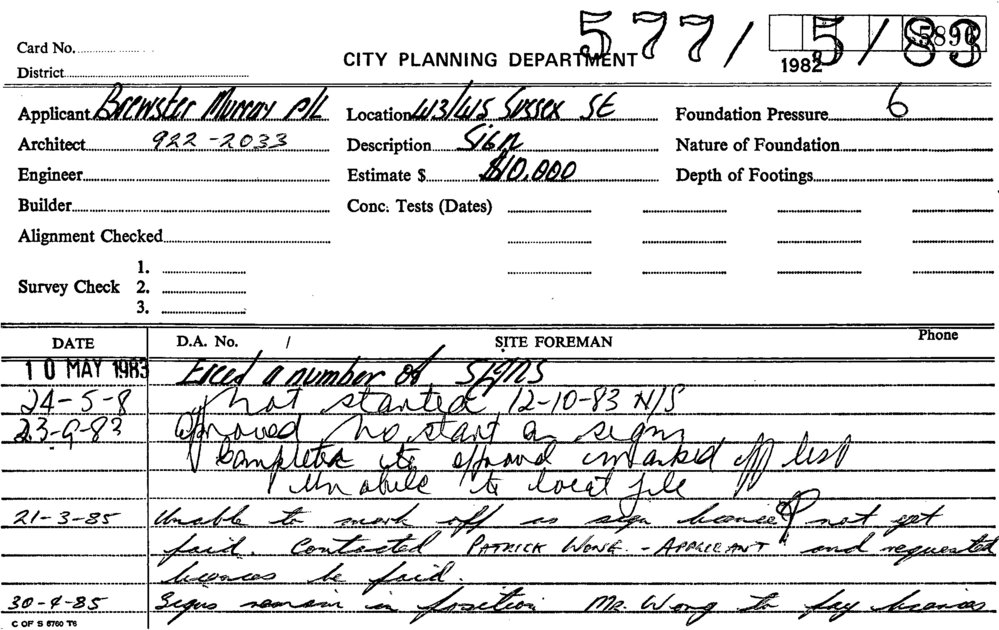 577/5/83
5896
Card No.
1982
District
CITY PLANNING DEPARTMENT
Applicant Brewster Murray P/L Location 413/415 Sussex St Foundation Pressure 6
Architect 922-2033 Description Sign Nature of Foundation
Engineer Estimate $ $10,000 Depth of Footings
Builder Conc. Tests (Dates)
Alignment Checked
1.
Survey Check 2.
3.
DATE D.A. No. / SITE FOREMAN Phone
10 MAY 1983 Erect a number of signs
24-5-8 Not started 12-10-83 N/S
23-9-83 Approved No start on signs
Completed to approval marked off list
Unable to locat file
21-3-85 Unable to mark off as sign licence not yet
paid. Contacted PATRICK WONG - APPLICANT and requested
licences be paid.
30-4-85 Signs remain in position Mr. Wong to pay licences
C OF S 8760 T6